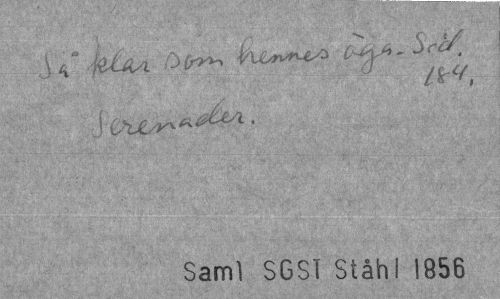 Så klar som hennes öga. Sid.
184.
Serenader.
Saml SGST Ståhl 1856